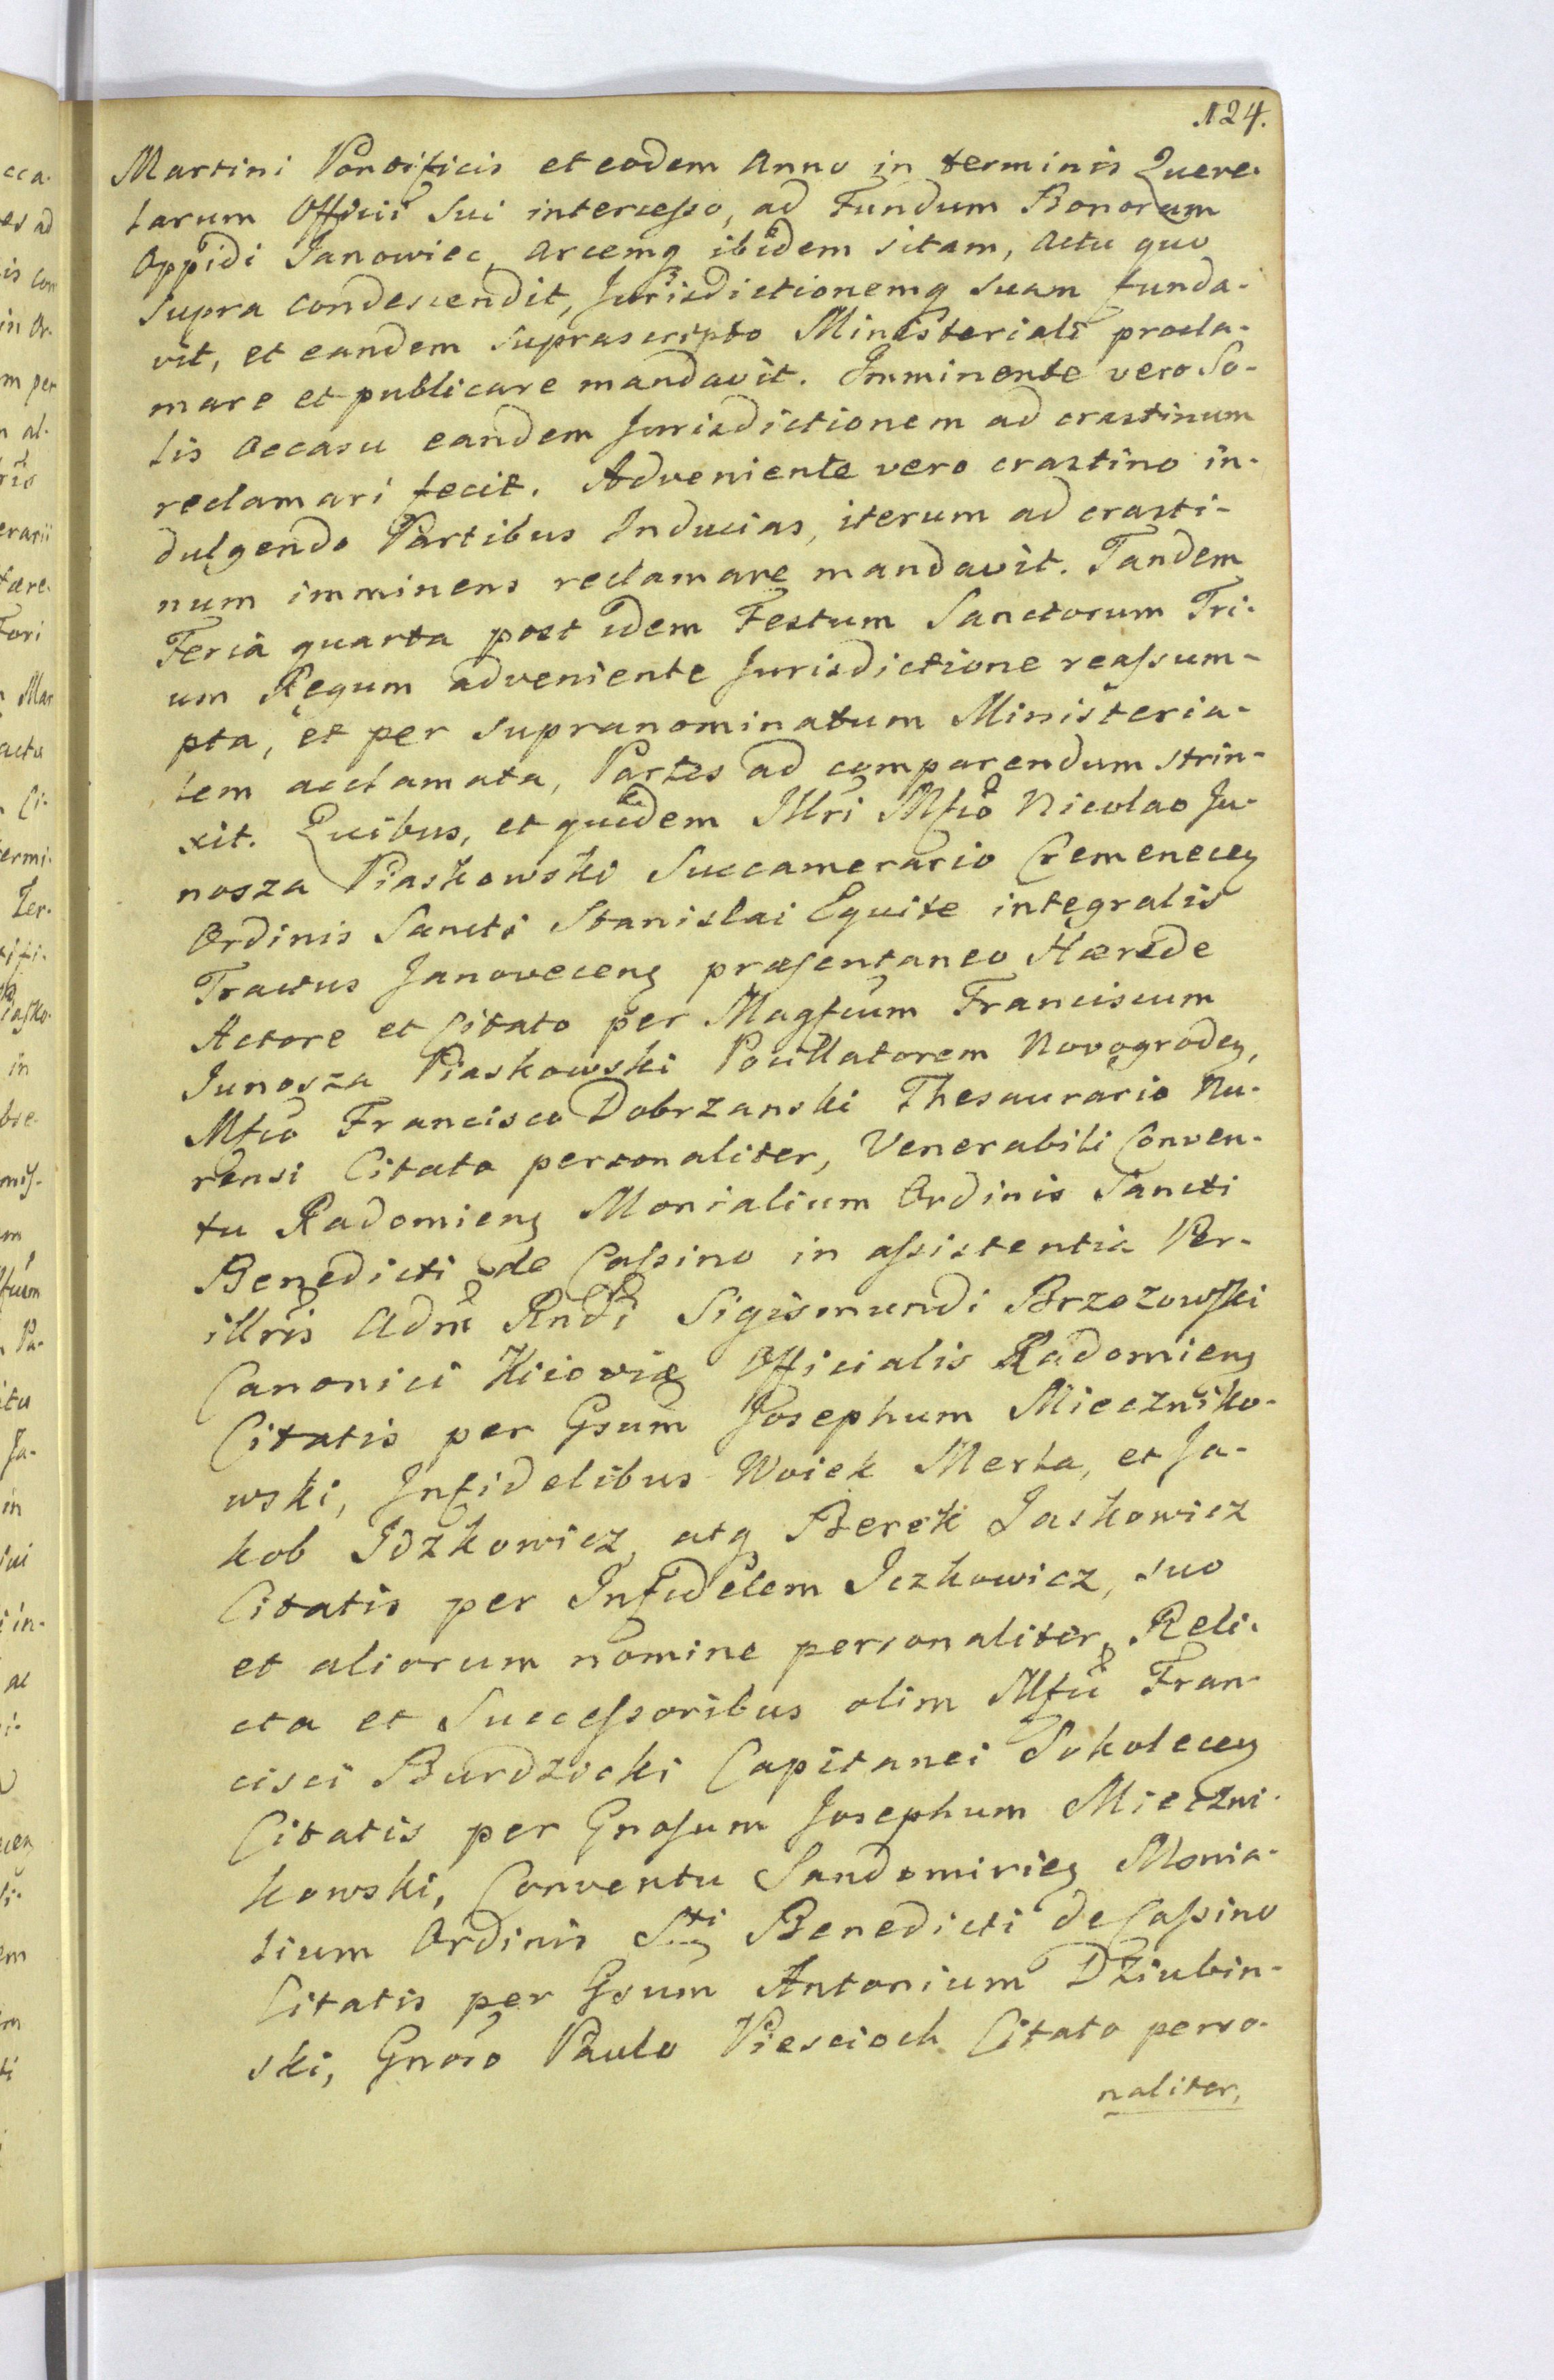 124.
Martini Pontificis et eodem Anno in terminis Quere-
larum Officii Sui intercesso, ad Fundum Bonorum
Oppidi Janowiec, Arcemq ibidem sitam, Actu quo
supra condescendit, Jurisdictionemq suam funda-
vit, et eandem suprascripto Ministeriali procla-
mare et publicare mandavit. Imminente vero So-
lis Occasu eandem Jurisdictionem ad crastinum
reclamari fecit. Adveniente vero crastino in-
dulgendo Partibus Inducias, iterum ad crasti-
num imminens reclamare mandavit. Tandem
Feria quarta post idem Festum Sanctorum Tri-
um Regum adveniente Jurisdictione reassum-
pta, et per supranominatum Ministeria-
lem acclamata, Partes ad comparendum strin-
xit. Quibus, et quidem Illri Mfco Nicolao Ju-
nosza Piaskowski Succamerario Cremenecen
Ordinis Sancti Stanislai Equite integralis
Tractus Janovecens præsentaneo Hærede
Actore et Citato per Magfcum Franciscum
Junosza Piaskowski Pocillatorem Novogroden,
Mfco Francisco Dobrzanski Thesaurario Nu-
rensi Citato personaliter, Venerabili Conven-
tu Radomiens Monialium Ordinis Sancti
Benedicti de Cassino in assistentia Per-
illris Adm Rndi Sigismundi Brzozowski
Canonici Kijoviæ Officialis Radomiens
Citatis per Gsum Josephum Mieczniko-
wski, Infidelibus Woiek Merla, et Ja-
kob Idzkowicz, atq Berek Jaskowicz
Citatis per Infidelem Iczkowicz, suo
et aliorum nomine personaliter, Reli-
cta et Successoribus olim Mfci Fran-
cisci Burdzicki Capitanei Sokolecen
Citatis per Gnosum Josephum Mieczni-
kowski, Conventu Sandomiriens Monia-
lium Ordinis Sti Benedicti de Cassino
Citatis per Gsum Antonium Dziubin-
ski, Gnoso Paulo Piescioch Citato perso-
naliter,